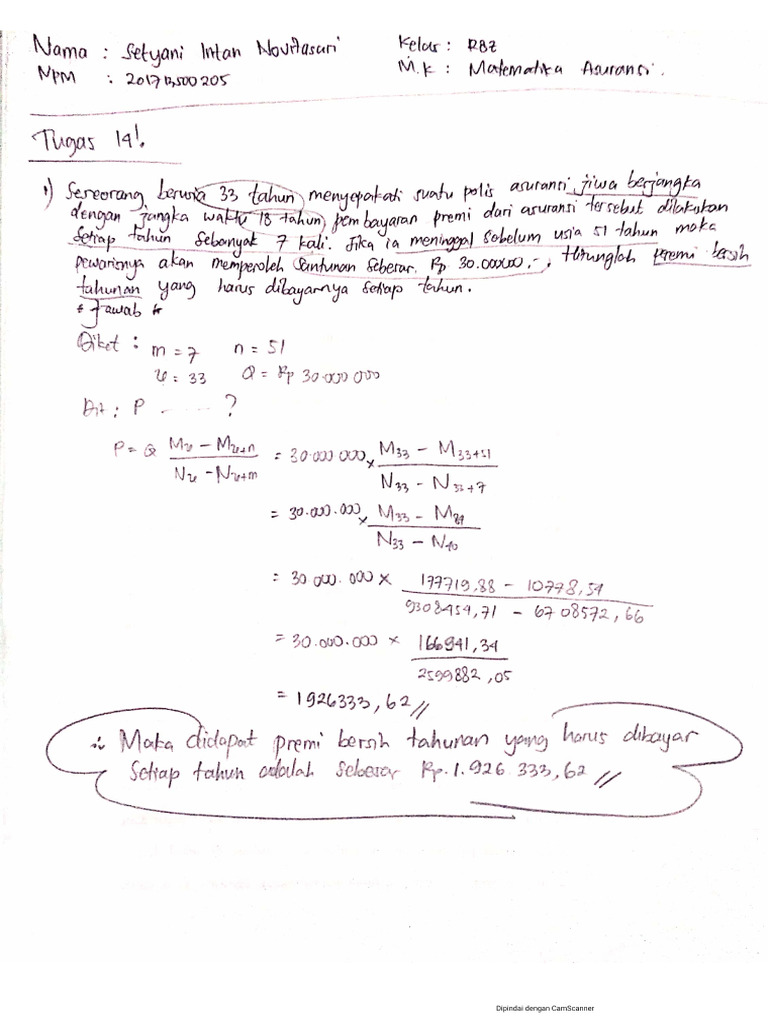 Nama : Setyani Intan Novitasari Kelas : R8Z
NPM : 201713500205 M.K : Matematika Asuransi.
Tugas 14!.
1) Seseorang berusia 33 tahun menyepakati suatu polis asuransi jiwa berjangka
dengan jangka waktu 18 tahun pembayaran premi dari asuransi tersebut dilakukan
setiap tahun sebanyak 7 kali. Jika ia meninggal sebelum usia 51 tahun maka
pewarisnya akan memperoleh santunan sebesar. Rp 30.000.000.-, Hitunglah premi bersih
tahunan yang harus dibayarnya setiap tahun.
* Jawab *
Diket : m = 7 n = 51
v = 33 Q = Rp 30.000 000
Dit : P ........ ?
P = Q (M_v - M_{v+n}) / (N_v - N_{v+m}) = 30.000 000 x (M_33 - M_{33+51}) / (N_33 - N_{33+7})
= 30.000.000 x (M_33 - M_84) / (N_33 - N_40)
= 30 000. 000 x (177719,88 - 10778,54) / (9308454,71 - 6708572,66)
= 30.000.000 x 166941,34 / 2599882,05
= 1926333,62 //
∴ Maka didapat premi bersih tahunan yang harus dibayar
Setiap tahun adalah sebesar Rp. 1.926 333,62 //
Dipindai dengan CamScanner